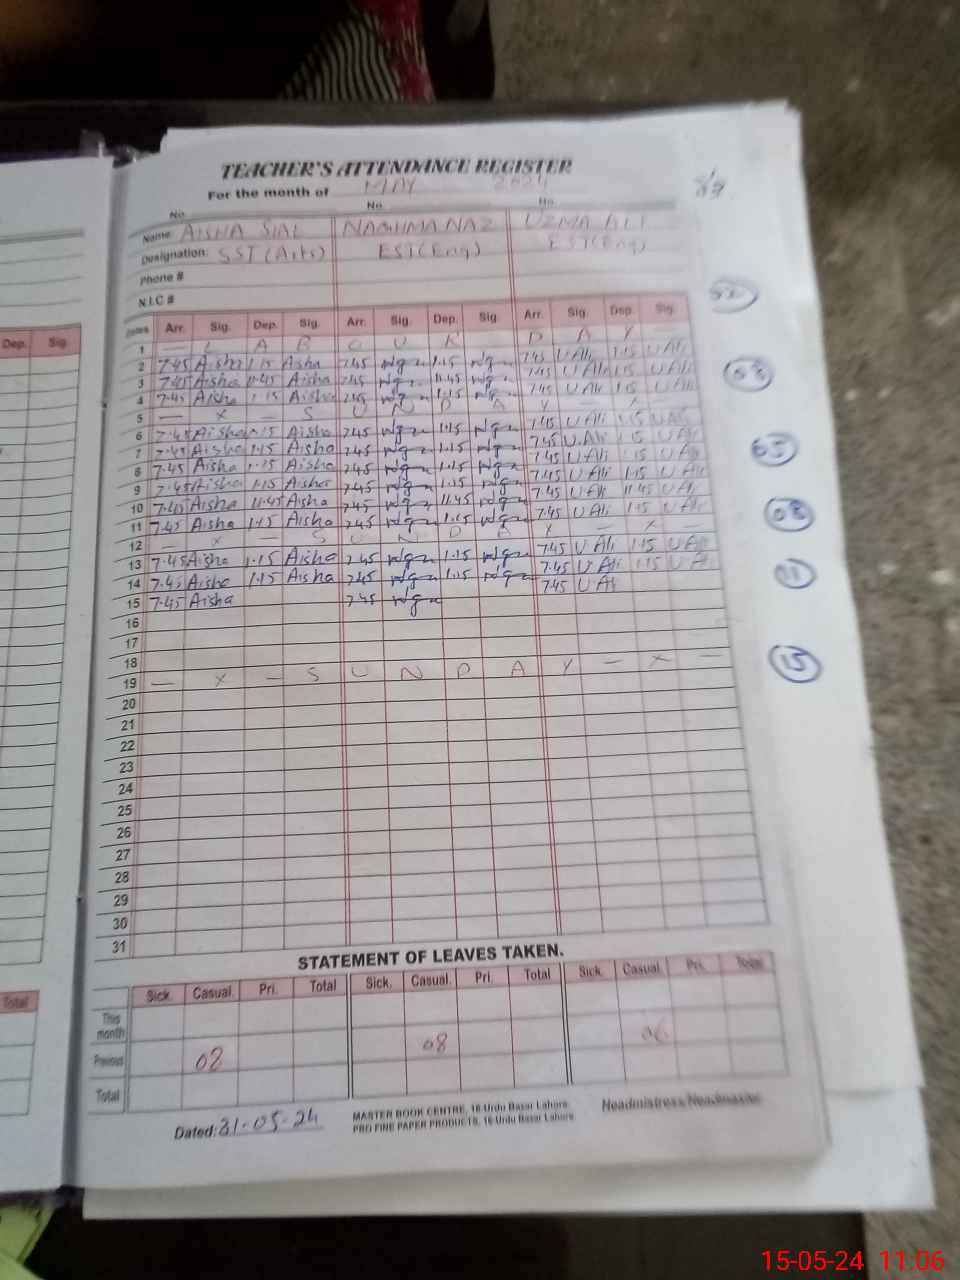 TEACHER'S ATTENDANCE REGISTER
For the month of MAY 2024
No. No. No.
Name: AISHA SIAL NAGHMA NAZ UZMA ALI
Designation: SST (Arts) EST(Eng) EST(Eng)
Phone #
N.I.C #
Dep. Sig.
Dates Arr. Sig. Dep. Sig. Arr. Sig. Dep. Sig. Arr. Sig. Dep. Sig.
1 — L A B O U R D A Y —
2 7.45 Aisha 1.15 Aisha 7.45 1.15 7.45 U Ali 1.15 U Ali
3 7.45 Aisha 11.45 Aisha 7.45 11.45 7.45 U Ali 1.15 U Ali
4 7.45 Aisha 1.15 Aisha 7.45 1.15 7.45 U Ali 1.15 U Ali
5 — x — S U N D A Y — x —
6 7.45 Aisha 1.15 Aisha 7.45 1.15 7.45 U Ali 1.15 U Ali
7 7.45 Aisha 1.15 Aisha 7.45 1.15 7.45 U.Ali 1.15 U Ali
8 7.45 Aisha 1.15 Aisha 7.45 1.15 7.45 U Ali 1.15 U Ali
9 7.45 Aisha 1.15 Aisha 7.45 1.15 7.45 U Ali 1.15 U Ali
10 7.45 Aisha 11.45 Aisha 7.45 11.45 7.45 U Ali 11.45 U Ali
11 7.45 Aisha 1.15 Aisha 7.45 1.15 7.45 U Ali 1.15 U Ali
12 — x — S U N D A Y — x —
13 7.45 Aisha 1.15 Aisha 7.45 1.15 7.45 U Ali 1.15 U Ali
14 7.45 Aisha 1.15 Aisha 7.45 1.15 7.45 U Ali 1.15 U Ali
15 7.45 Aisha 7.45 7.45 U Ali
16
17
18
19 — x — S U N D A Y — x —
20
21
22
23
24
25
26
27
28
29
30
31
03
08
11
15
STATEMENT OF LEAVES TAKEN.
Total
Sick. Casual. Pri. Total Sick. Casual. Pri. Total Sick. Casual. Pri. Total
This month
Previous 08 08 06
Total
Dated: 31-05-24
MASTER BOOK CENTRE, 16-Urdu Bazar Lahore
PRO FINE PAPER PRODUCTS, 16-Urdu Bazar Lahore
Headmistress/Headmaster
15-05-24 11:06